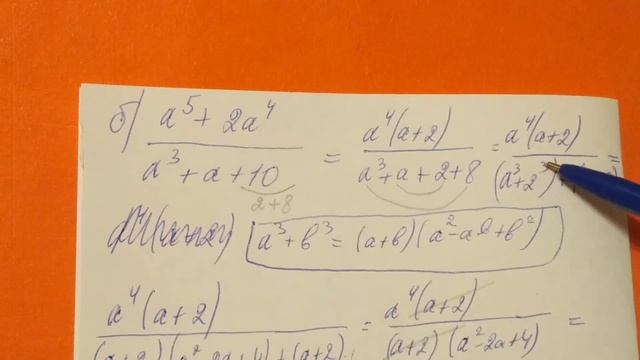 б) a⁵ + 2a⁴ / a³ + a + 10 = a⁴(a+2) / a³ + a + 2 + 8 = a⁴(a+2) / (a³+2³) + =
2+8
a³ + b³ = (a+b)(a² - ab + b²)
a⁴(a+2) / (a+2)(a²-2a+4)+(a+2) = a⁴(a+2) / (a+2)(a²-2a+4) =